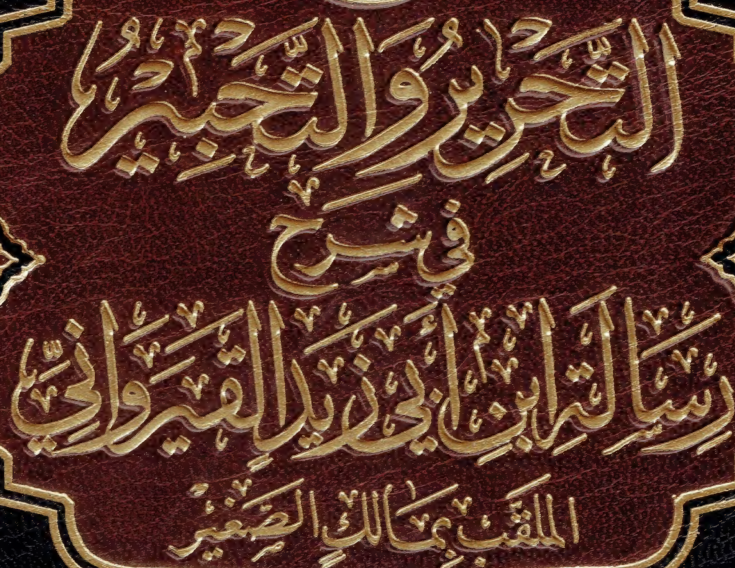 التَّحْرِيرُ وَالتَّحْبِيْرُ
فِي شَرْحِ
رِسَالَةِ ابْنِ أَبِي زَيْدٍ الْقَيْرَوَانِيِّ
المُلَقَّبِ بِمَالِكٍ الصَّغِيْرِ